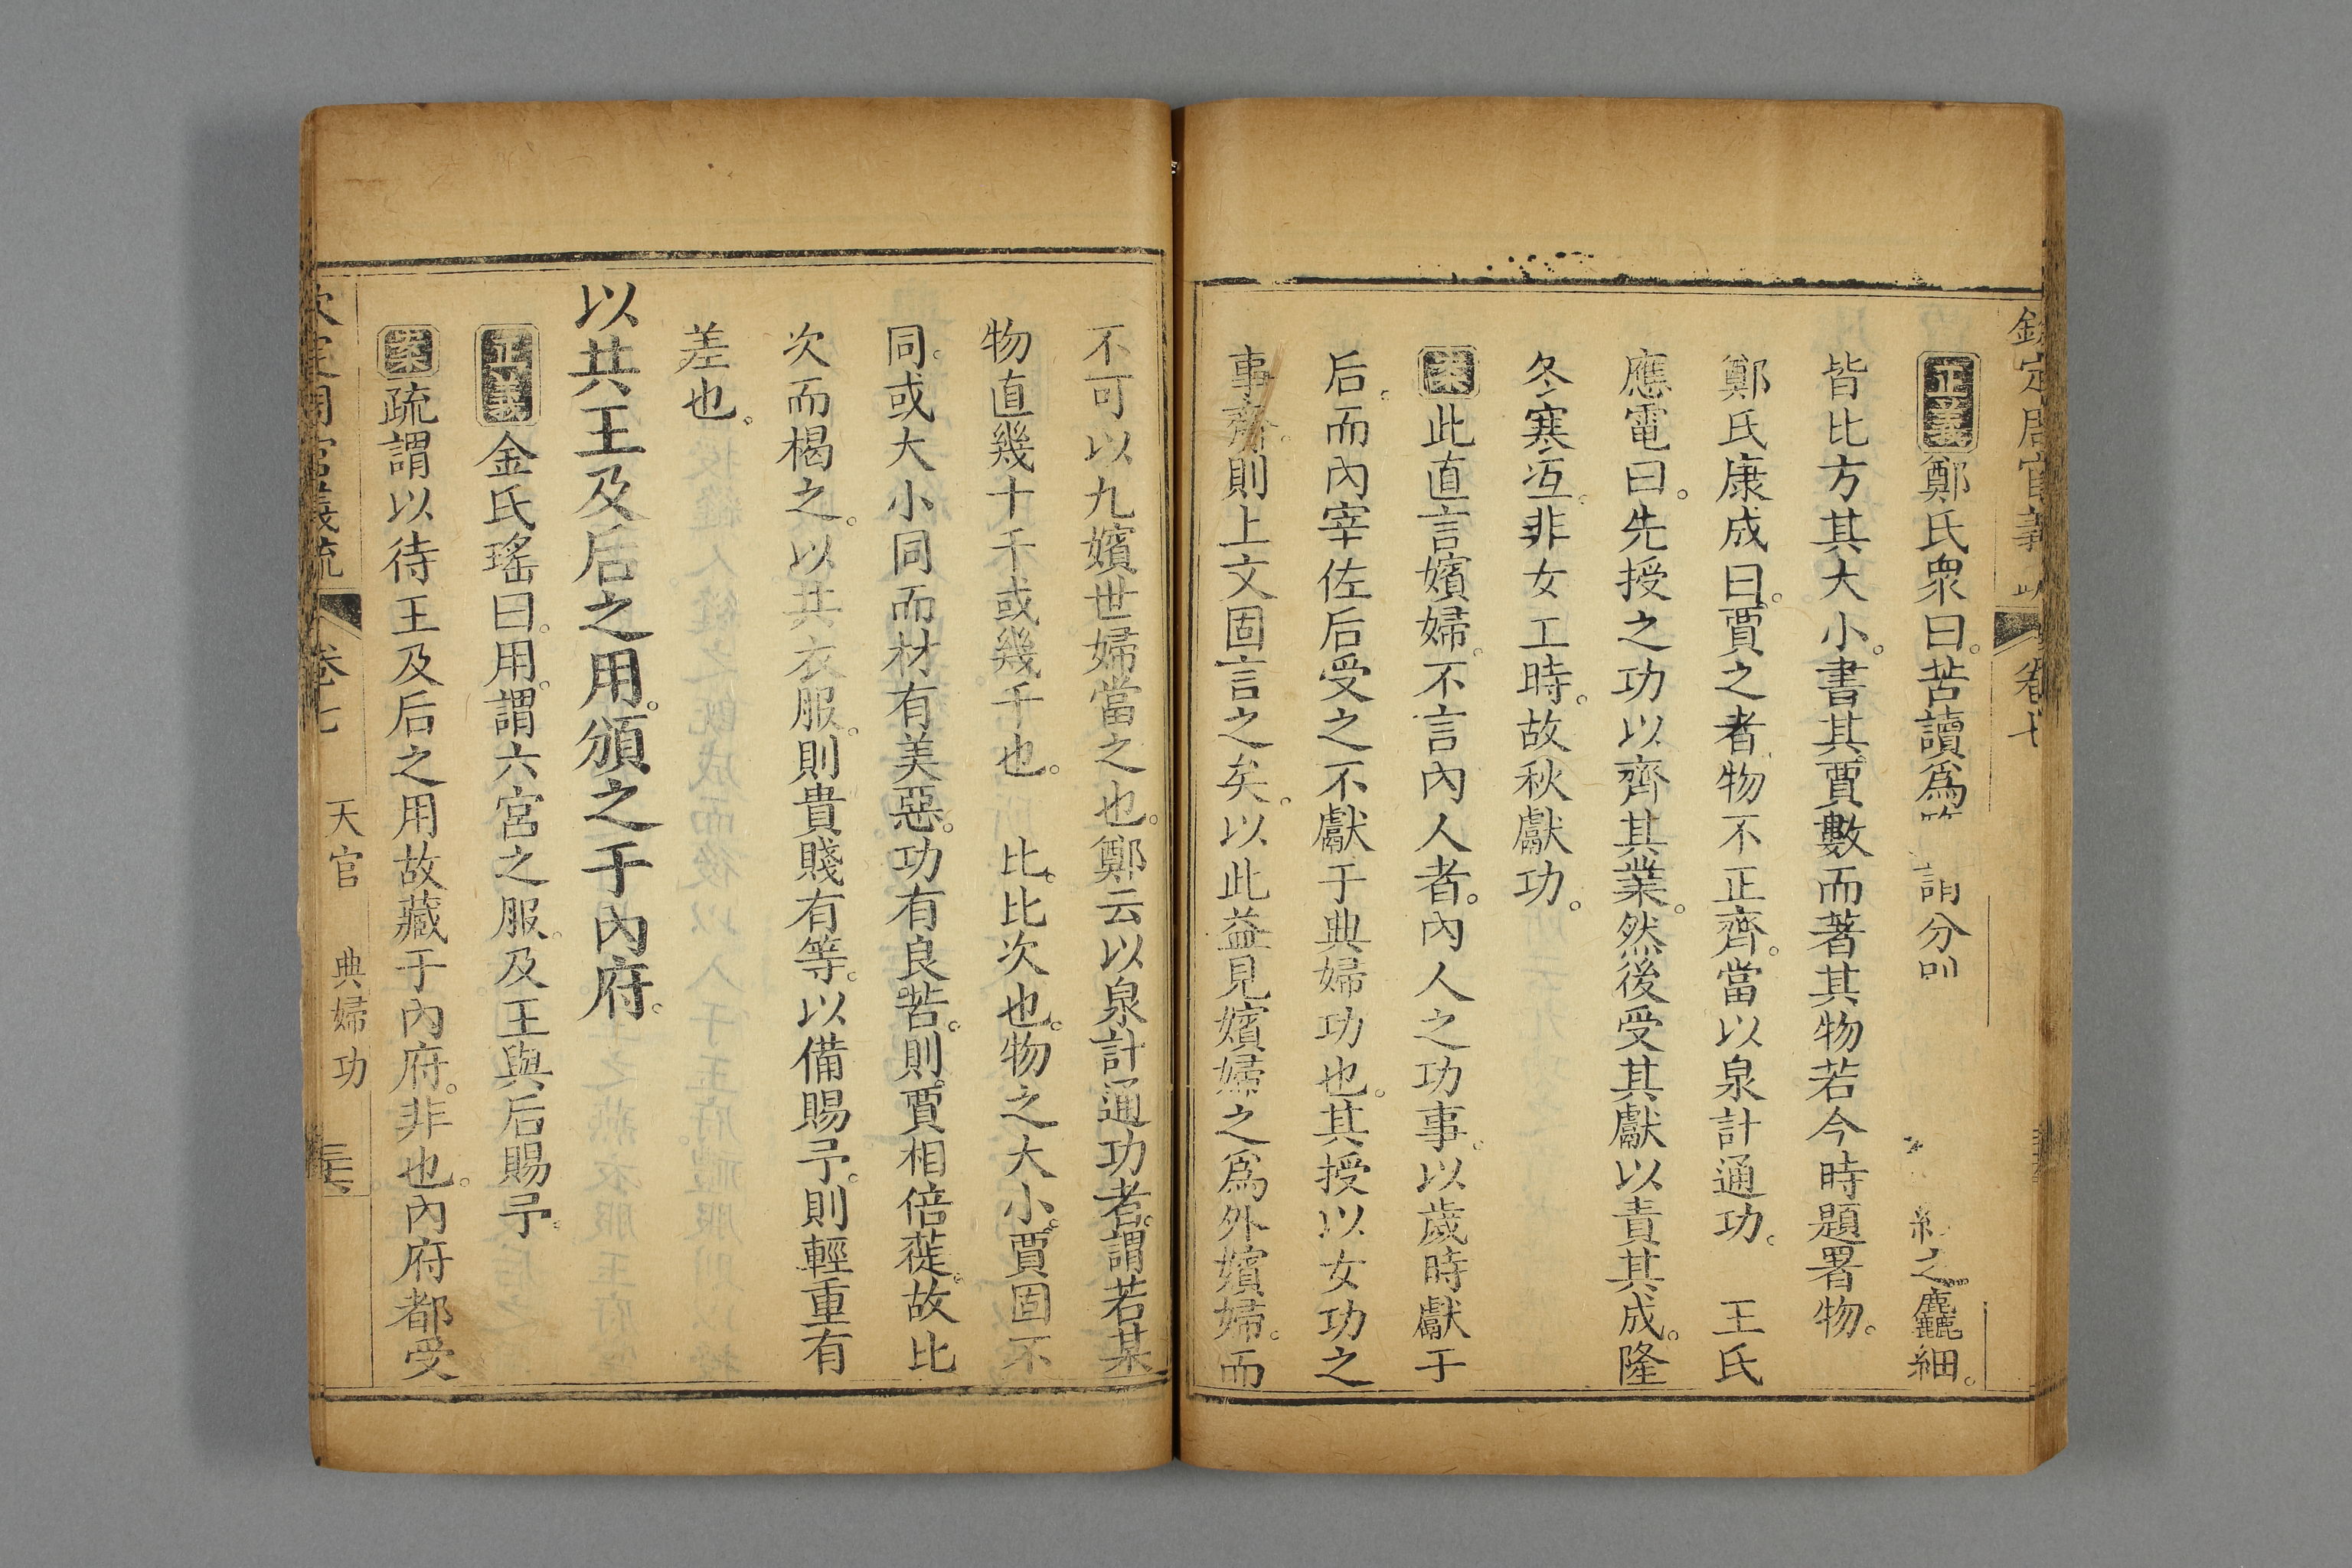 欽定周官義疏 卷七
正義鄭氏衆曰。苦讀爲 謂分別 之麤細。
皆比方其大小。書其賈數而著其物若今時題署物。
鄭氏康成曰。賈之者物不正齊。當以泉計通功。 王氏
應電曰。先授之功以齊其業。然後受其獻以責其成。隆
冬寒沍。非女工時。故秋獻功。
案此直言嬪婦。不言內人者。內人之功事。以歲時獻于
后。而內宰佐后受之不獻于典婦功也。其授以女功之
事齎。則上文固言之矣。以此益見嬪婦之爲外嬪婦。而
不可以九嬪世婦當之也。鄭云以泉計通功者。謂若某
物直幾十千或幾千也。 比。比次也。物之大小。賈固不
同。或大小同而材有美惡。功有良苦。則賈相倍蓰。故比
次而楬之。以共衣服。則貴賤有等。以備賜予。則輕重有
差也。
以共王及后之用。頒之于內府。
正義金氏瑤曰。用。謂六宮之服。及王與后賜予。
案疏謂以待王及后之用故藏于內府。非也。內府都受
欽定周官義疏 卷七 天官 典婦功